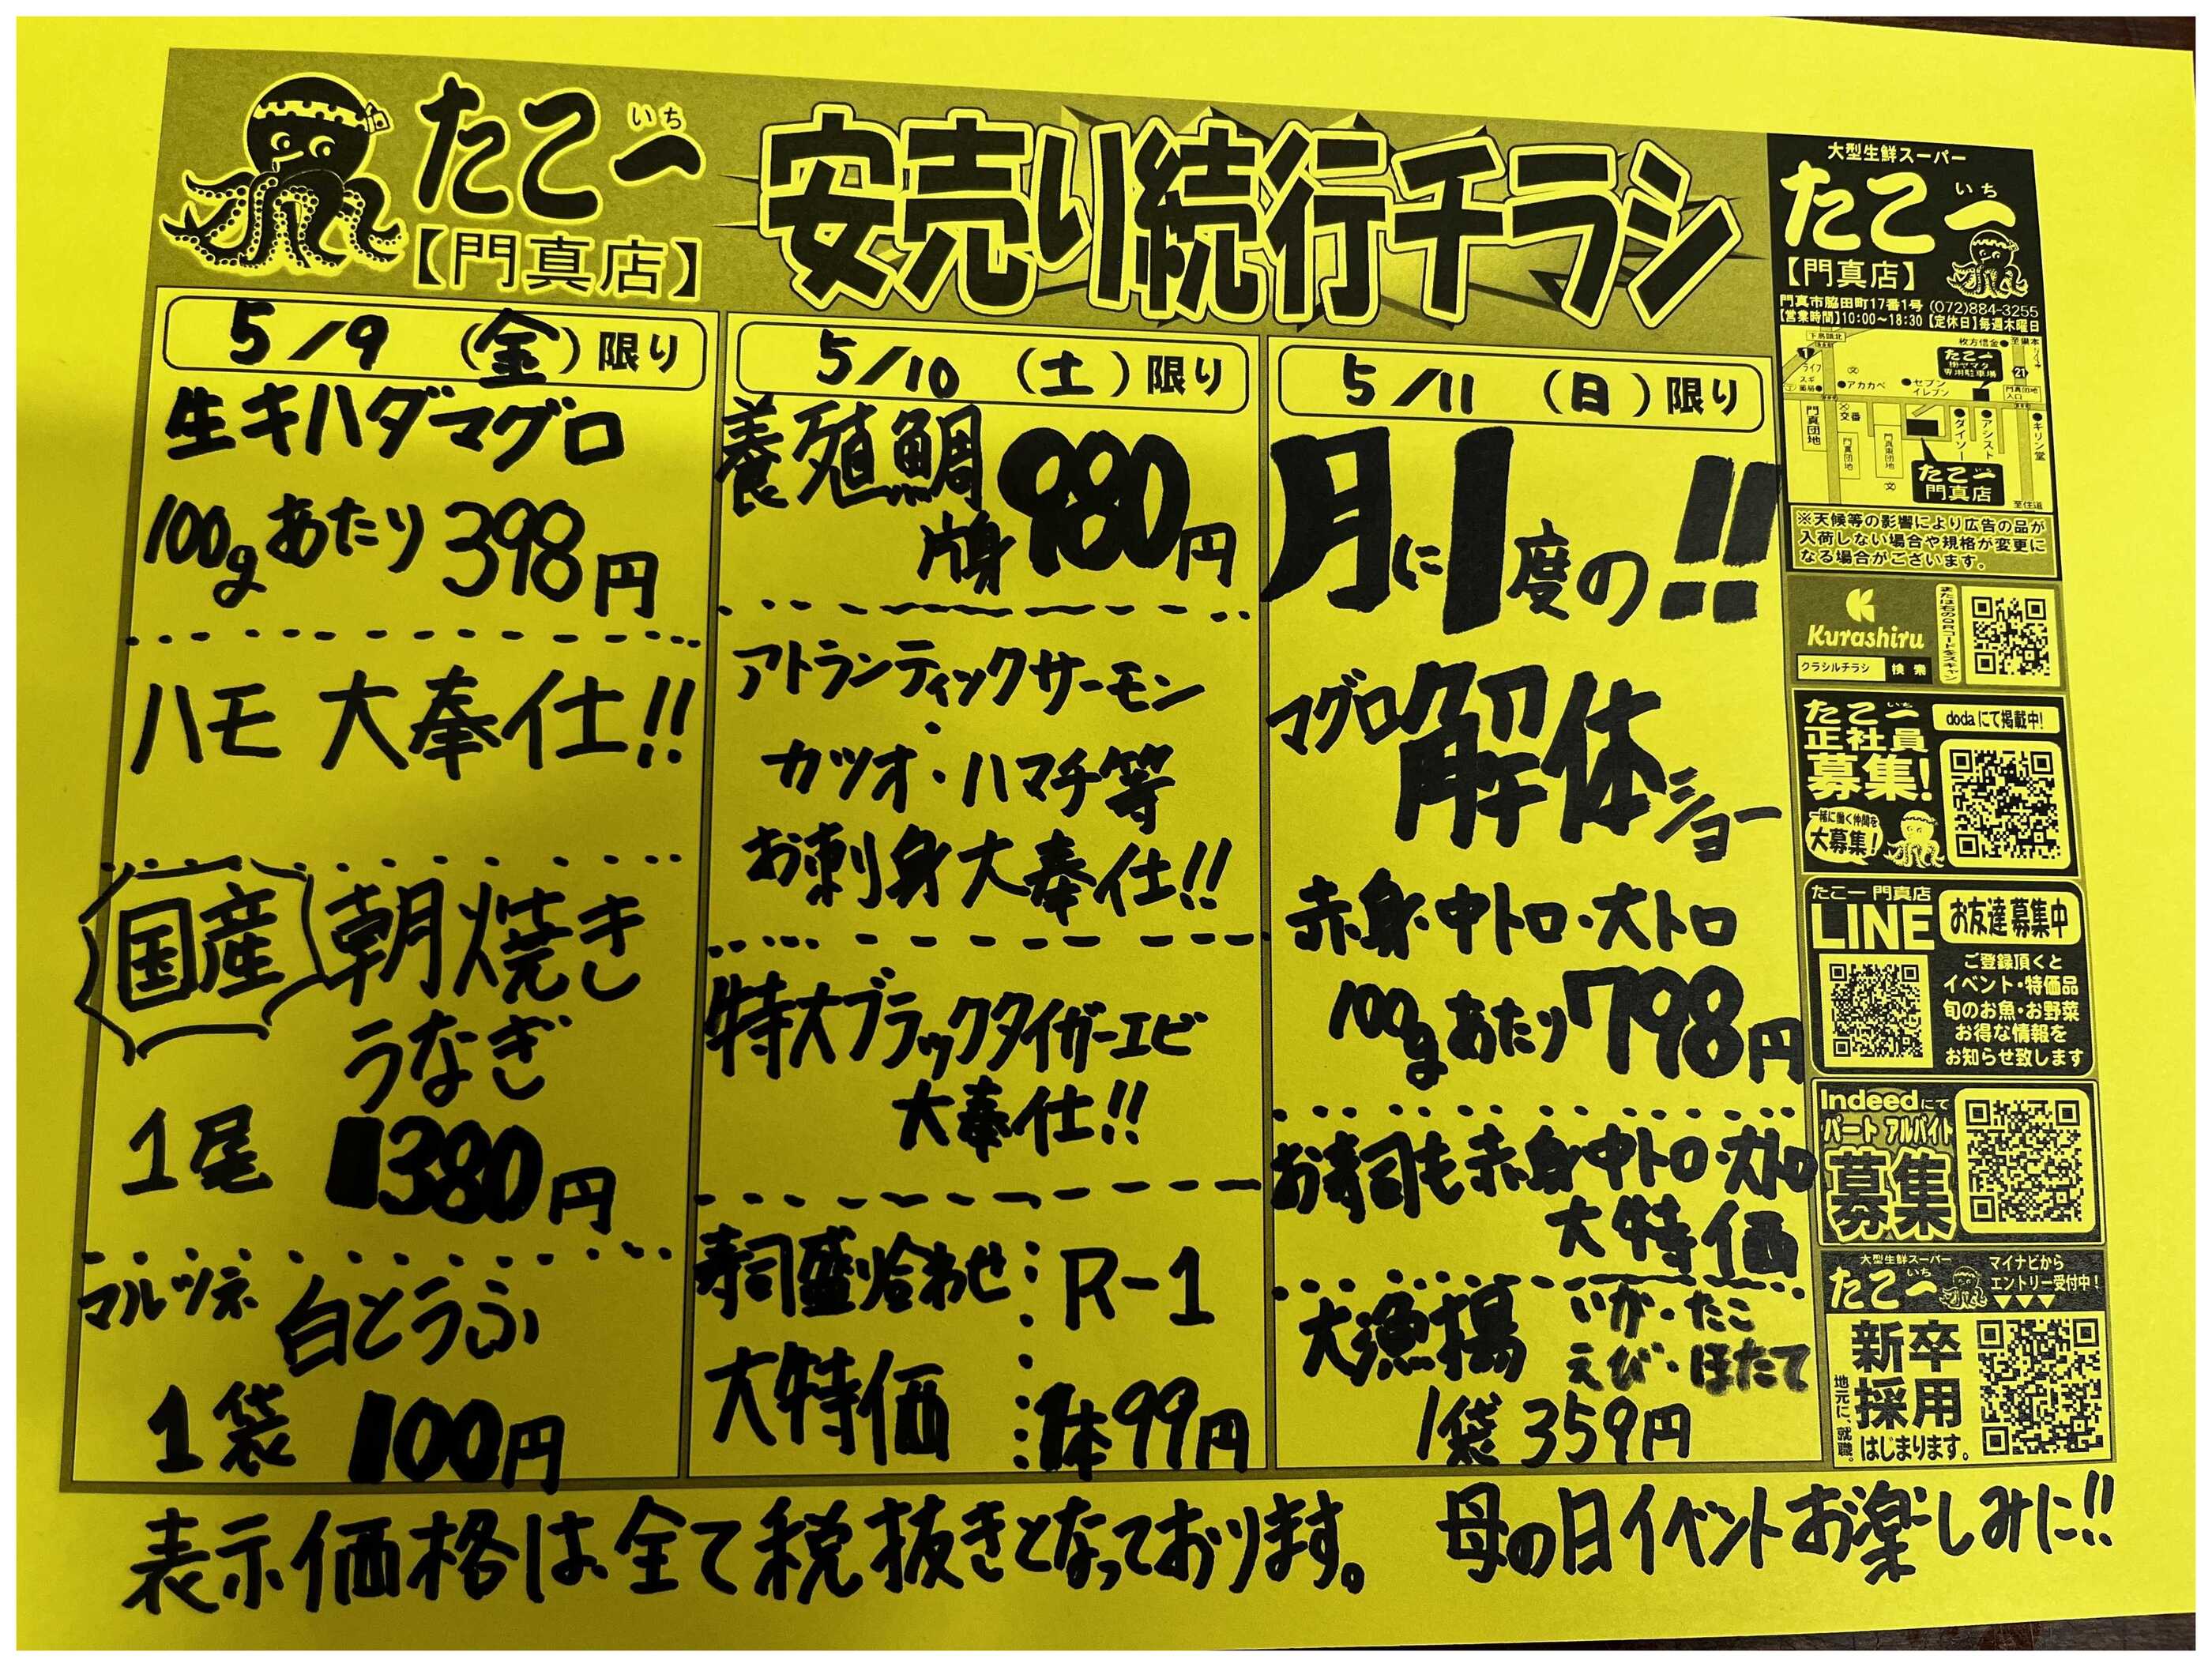 たこ一
いち
【門真店】
安売り続行チラシ
5/9 (金)限り
生キハダマグロ
100gあたり398円
ハモ 大奉仕!!
国産 朝焼き
うなぎ
1尾 1380円
マルツネ 白とうふ
1袋 100円
5/10 (土)限り
養殖鯛
片身 980円
アトランティックサーモン
・
カツオ・ハマチ等
お刺身大奉仕!!
特大ブラックタイガーエビ
大奉仕!!
寿司盛り合わせ
大特価
R-1
1本99円
5/11 (日)限り
月に1度の!!
マグロ解体ショー
赤身・中トロ・大トロ
100gあたり798円
お寿司も赤身中トロ・大トロ
大特価
大漁揚 いか・たこ
えび・ほたて
1袋359円
表示価格は全て税抜きとなっております。 母の日イベントお楽しみに!!
大型生鮮スーパー
たこ一
いち
【門真店】
門真市脇田町17番1号 (072)884-3255
【営業時間】10:00～18:30【定休日】毎週木曜日
枚方信金
たこ一
専用駐車場
21
1
ライフ
アカカベ
セブン
イレブン
交番
門真団地
ダイソー
アシスト
キリン堂
たこ一
門真店
至住道
※天候等の影響により広告の品が
入荷しない場合や規格が変更に
なる場合がございます。
Kurashiru
クラシルチラシ 検索
または右のQRコードをスキャン
たこ一
いち
正社員
募集!
dodaにて掲載中!
一緒に働く仲間を
大募集!
たこ一 門真店
LINE
お友達募集中
ご登録頂くと
イベント・特価品
旬のお魚・お野菜
お得な情報を
お知らせ致します
Indeedにて
パート アルバイト
募集
大型生鮮スーパー
たこ一
いち
マイナビから
エントリー受付中!
新卒
採用
はじまります。
地元に、就職。